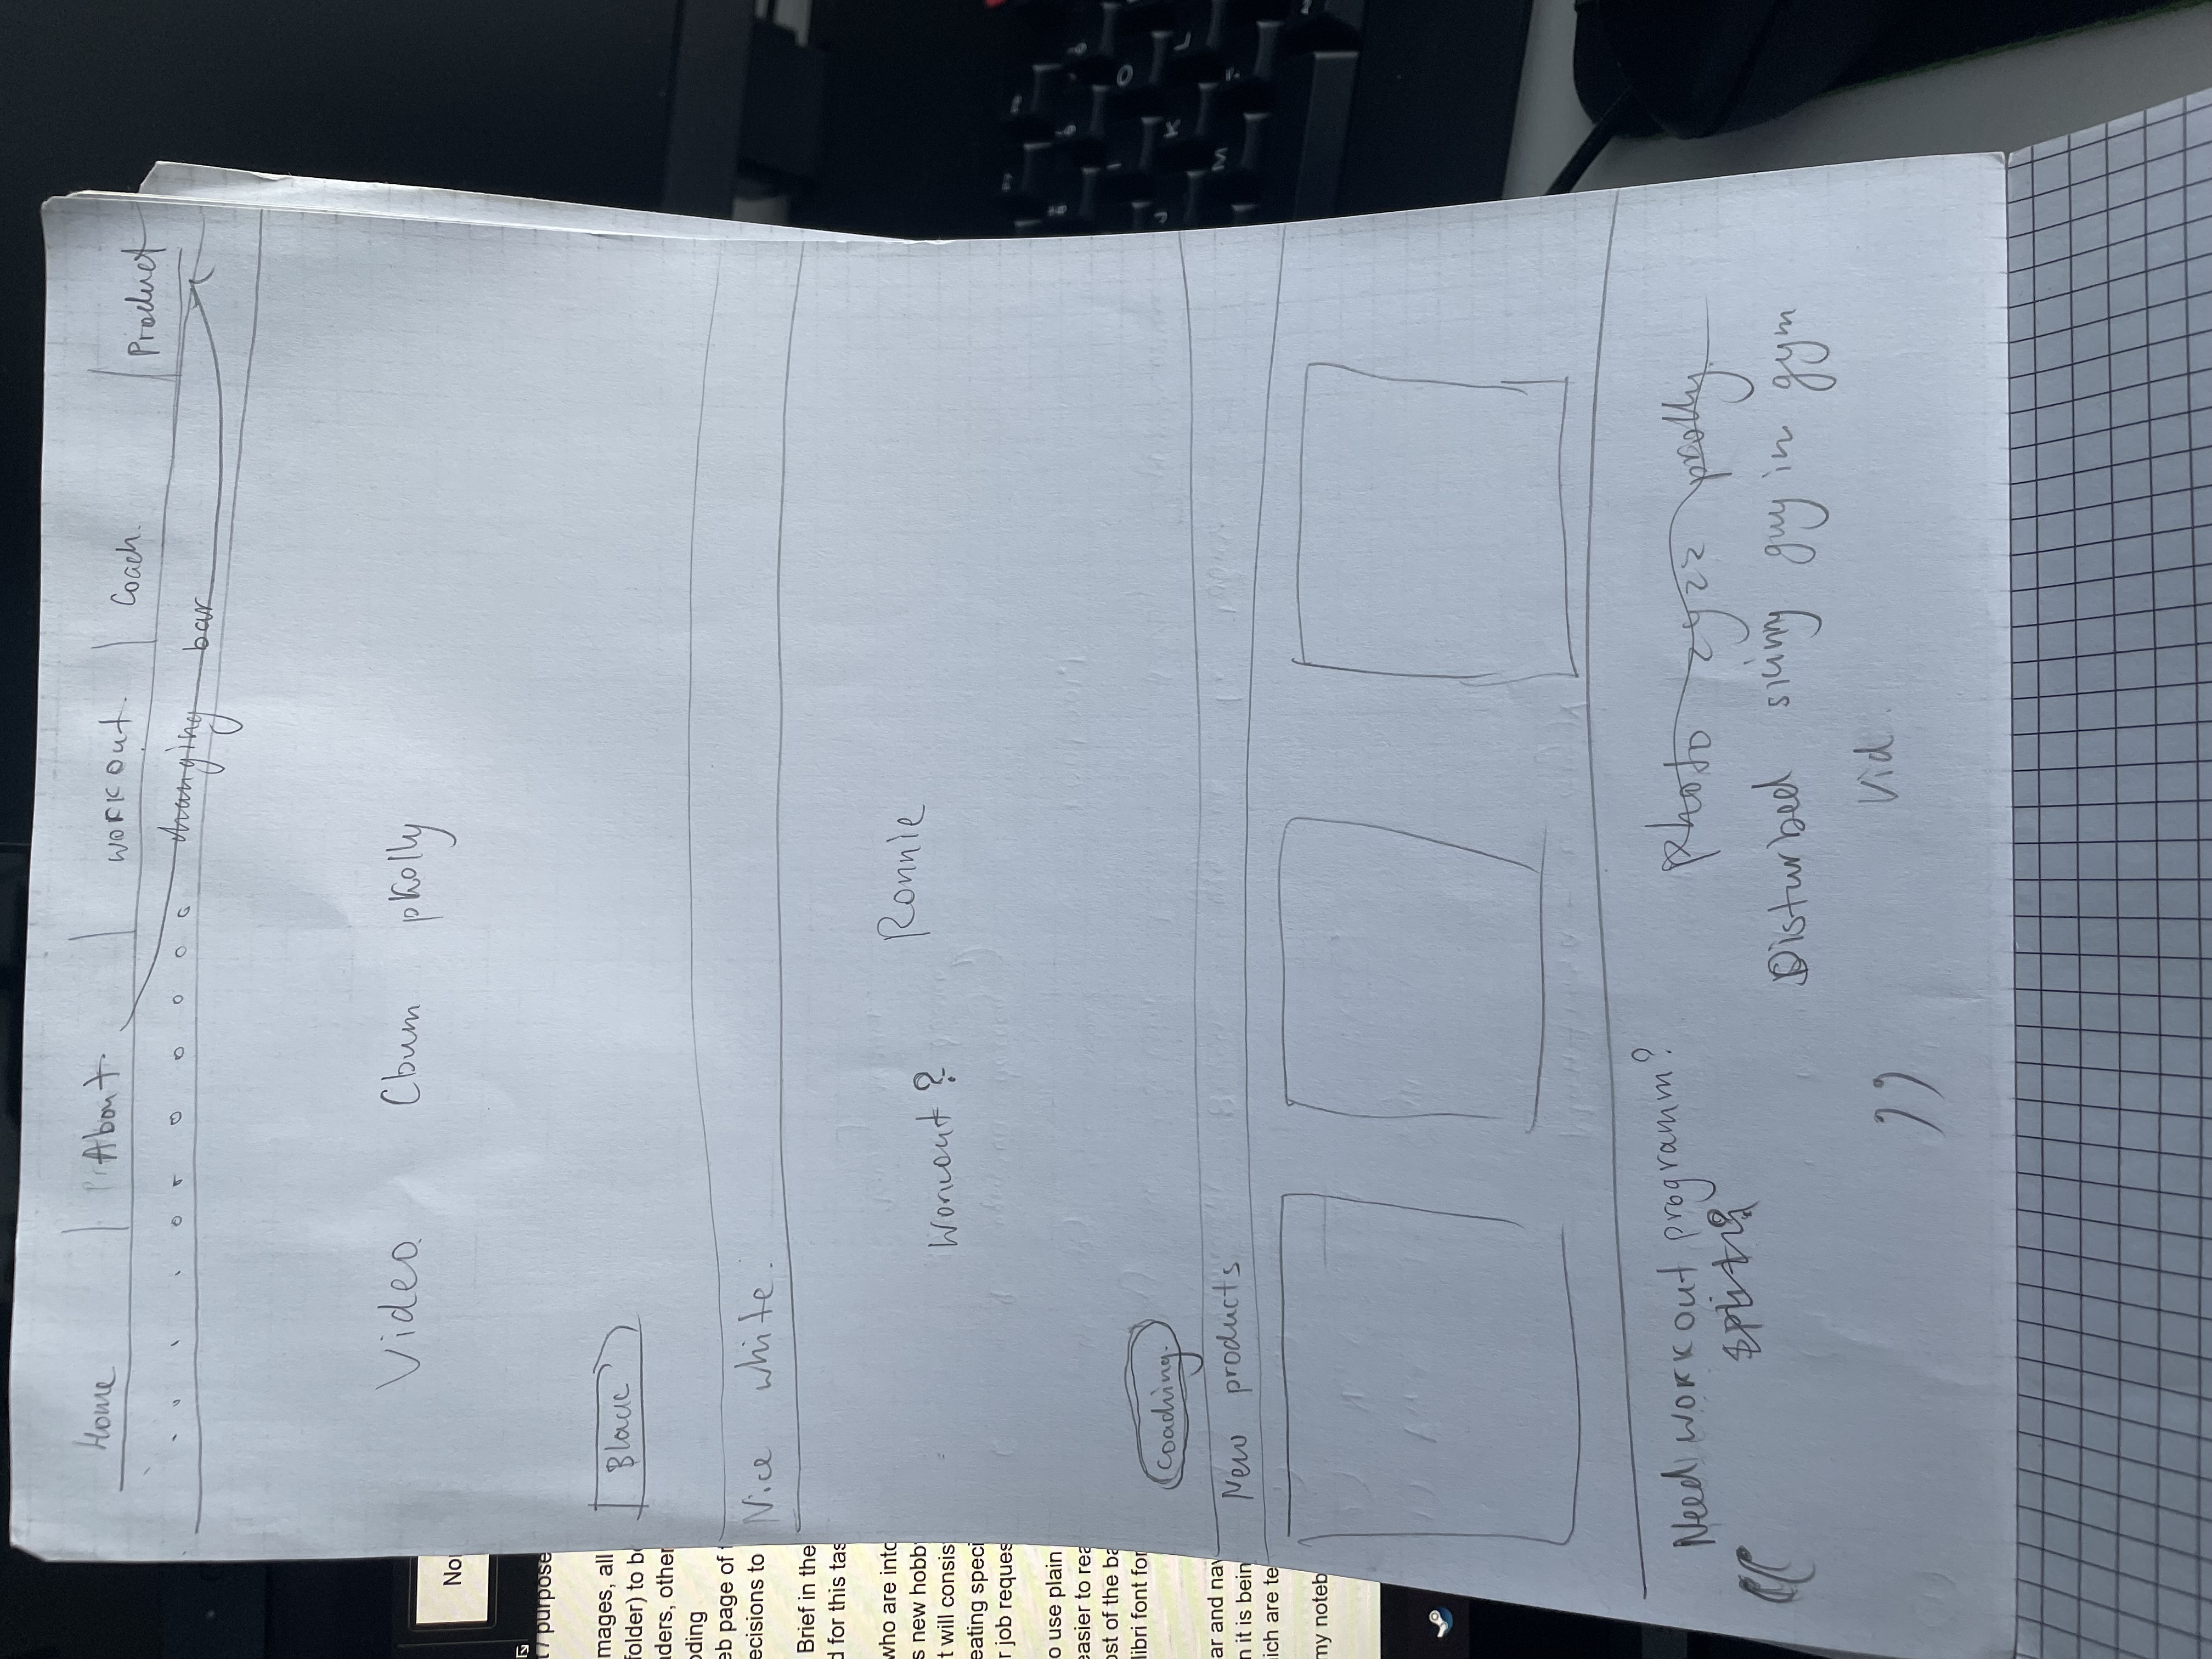 Home About. workout. Coach. Product
changing bar
Video Cbum pKolly
Blacк
Nice white.
Ronnie
Workout?
Coaching.
New products
Need workout programm?
split?
photo zyzz prolly
Disturbed skinny guy in gym
Vid.
No
t / purpose
mages, all
folder) to b
ders, other
ding
eb page of
ecisions to
Brief in the
d for this tas
who are into
s new hobby
t will consis
eating speci
r job reques
o use plain
easier to rea
ost of the ba
libri font for
ar and nav
n it is bein
ich are te
my noteb